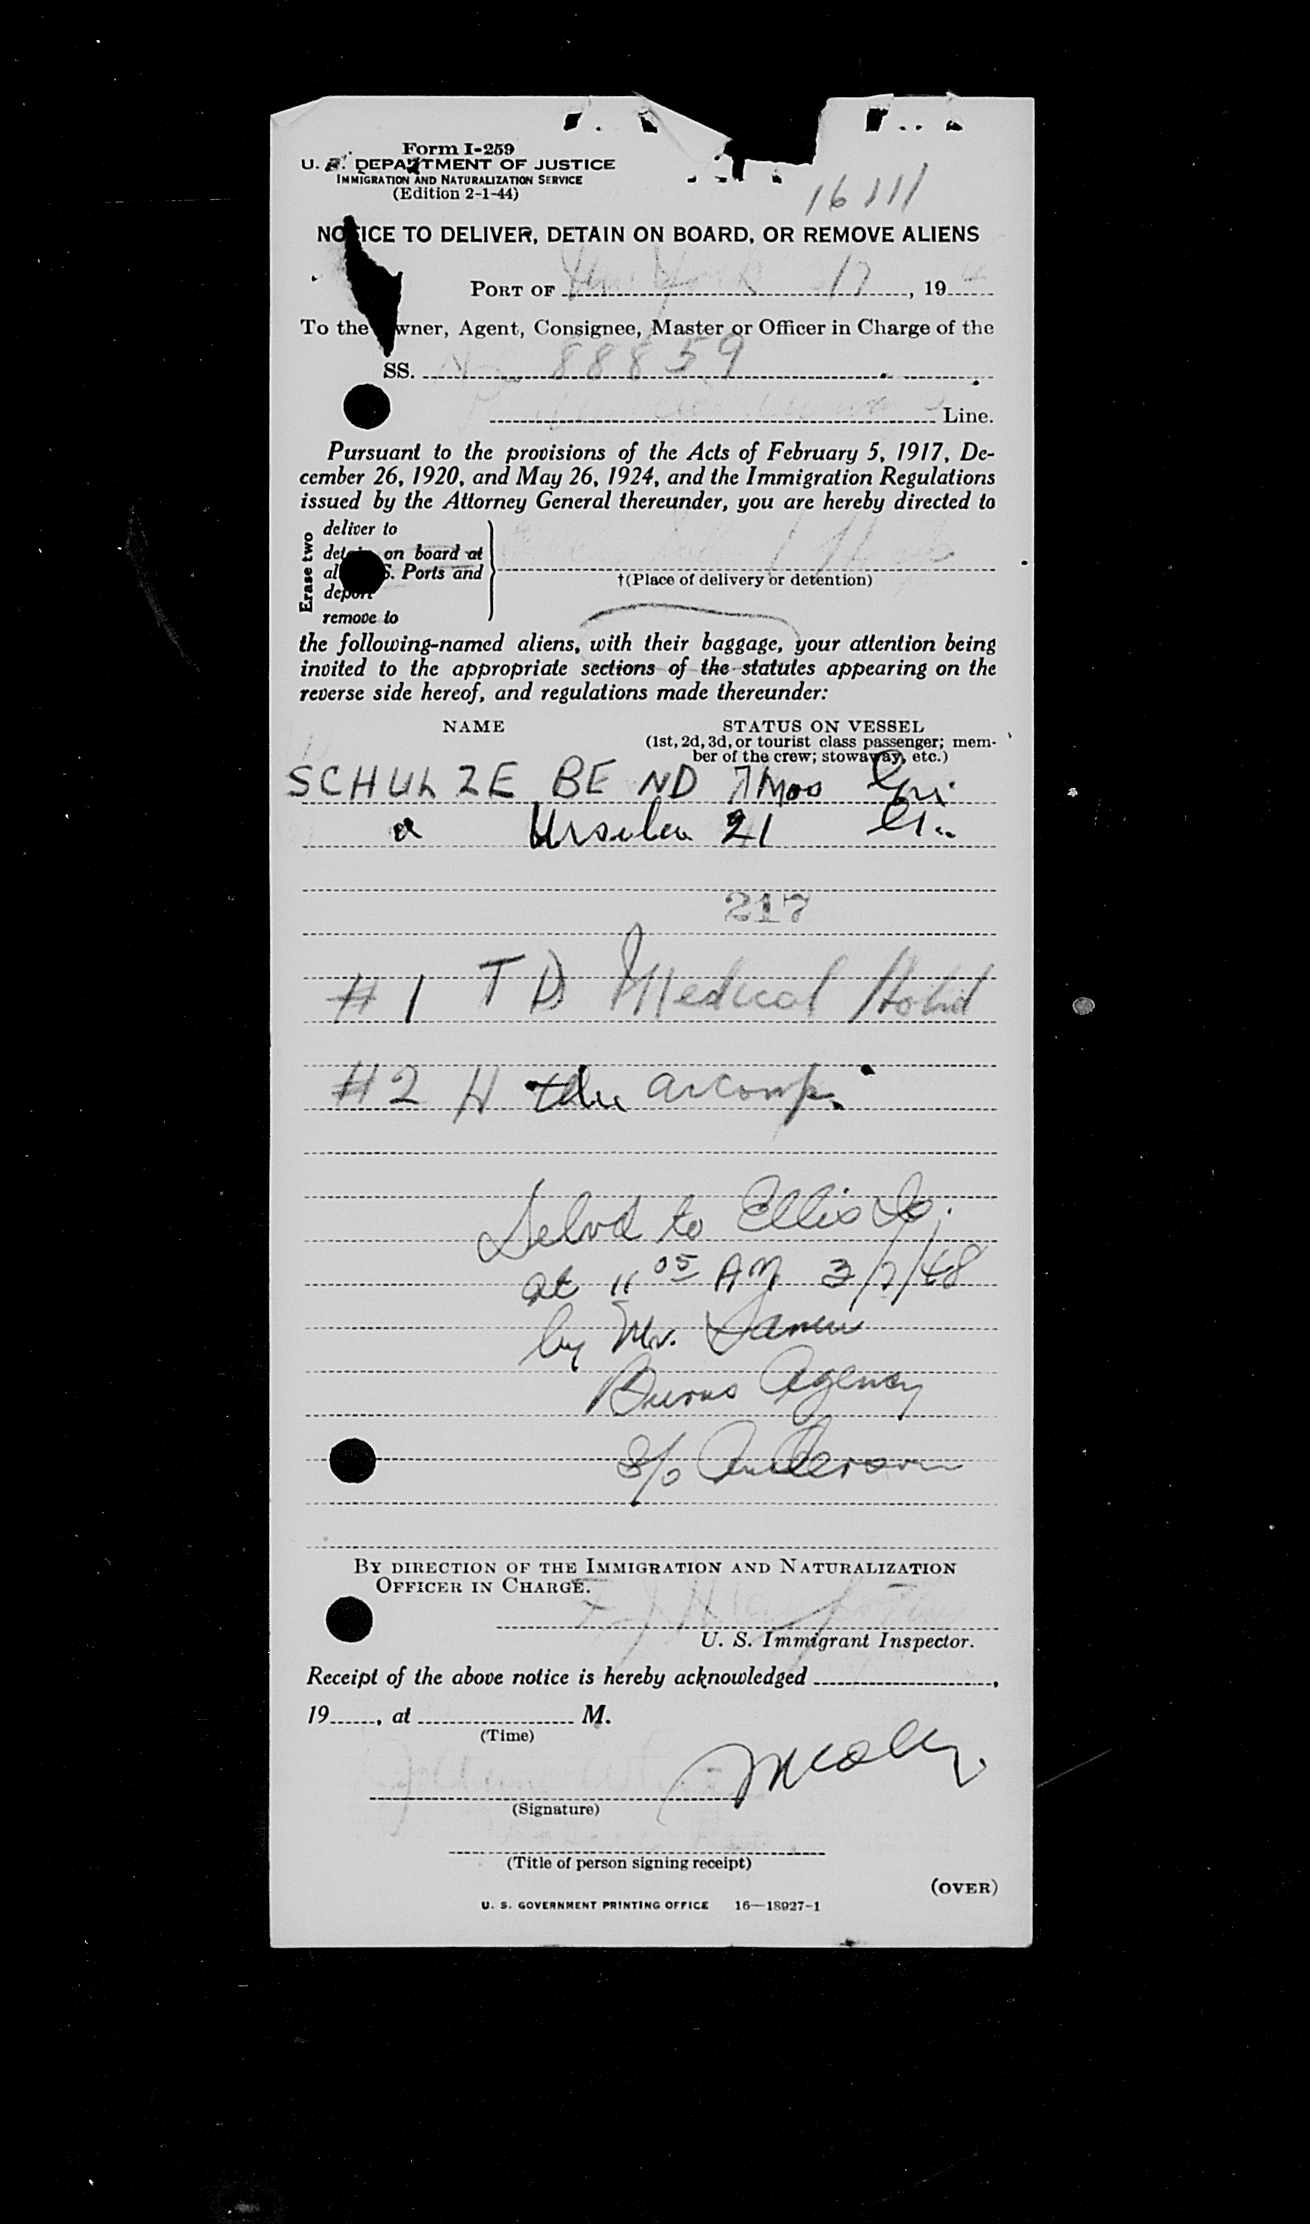 Form I-259
U. S. DEPARTMENT OF JUSTICE
IMMIGRATION AND NATURALIZATION SERVICE
(Edition 2-1-44)
16111
NOTICE TO DELIVER, DETAIN ON BOARD, OR REMOVE ALIENS
PORT OF New York 17, 194
To the Owner, Agent, Consignee, Master or Officer in Charge of the
SS. 88859
Line.
Pursuant to the provisions of the Acts of February 5, 1917, De-
cember 26, 1920, and May 26, 1924, and the Immigration Regulations
issued by the Attorney General thereunder, you are hereby directed to
Erase two
deliver to
detain on board at
all U.S. Ports and
deport
remove to
†(Place of delivery or detention)
the following-named aliens, with their baggage, your attention being
invited to the appropriate sections of the statutes appearing on the
reverse side hereof, and regulations made thereunder:
NAME STATUS ON VESSEL
(1st, 2d, 3d, or tourist class passenger; mem-
ber of the crew; stowaway, etc.)
SCHULZE BE ND 7 Mos
Ursula 21
217
#1 TD Medical Hold
#2 H accomp.
Delvd to Ellis Is.
at 11 05 AM 3/7/48
by Mr.
Burns Agency
S/O Anderson
BY DIRECTION OF THE IMMIGRATION AND NATURALIZATION
OFFICER IN CHARGE.
U. S. Immigrant Inspector.
Receipt of the above notice is hereby acknowledged ,
19 , at M.
(Time)
(Signature)
(Title of person signing receipt)
(OVER)
U. S. GOVERNMENT PRINTING OFFICE 16—18927-1